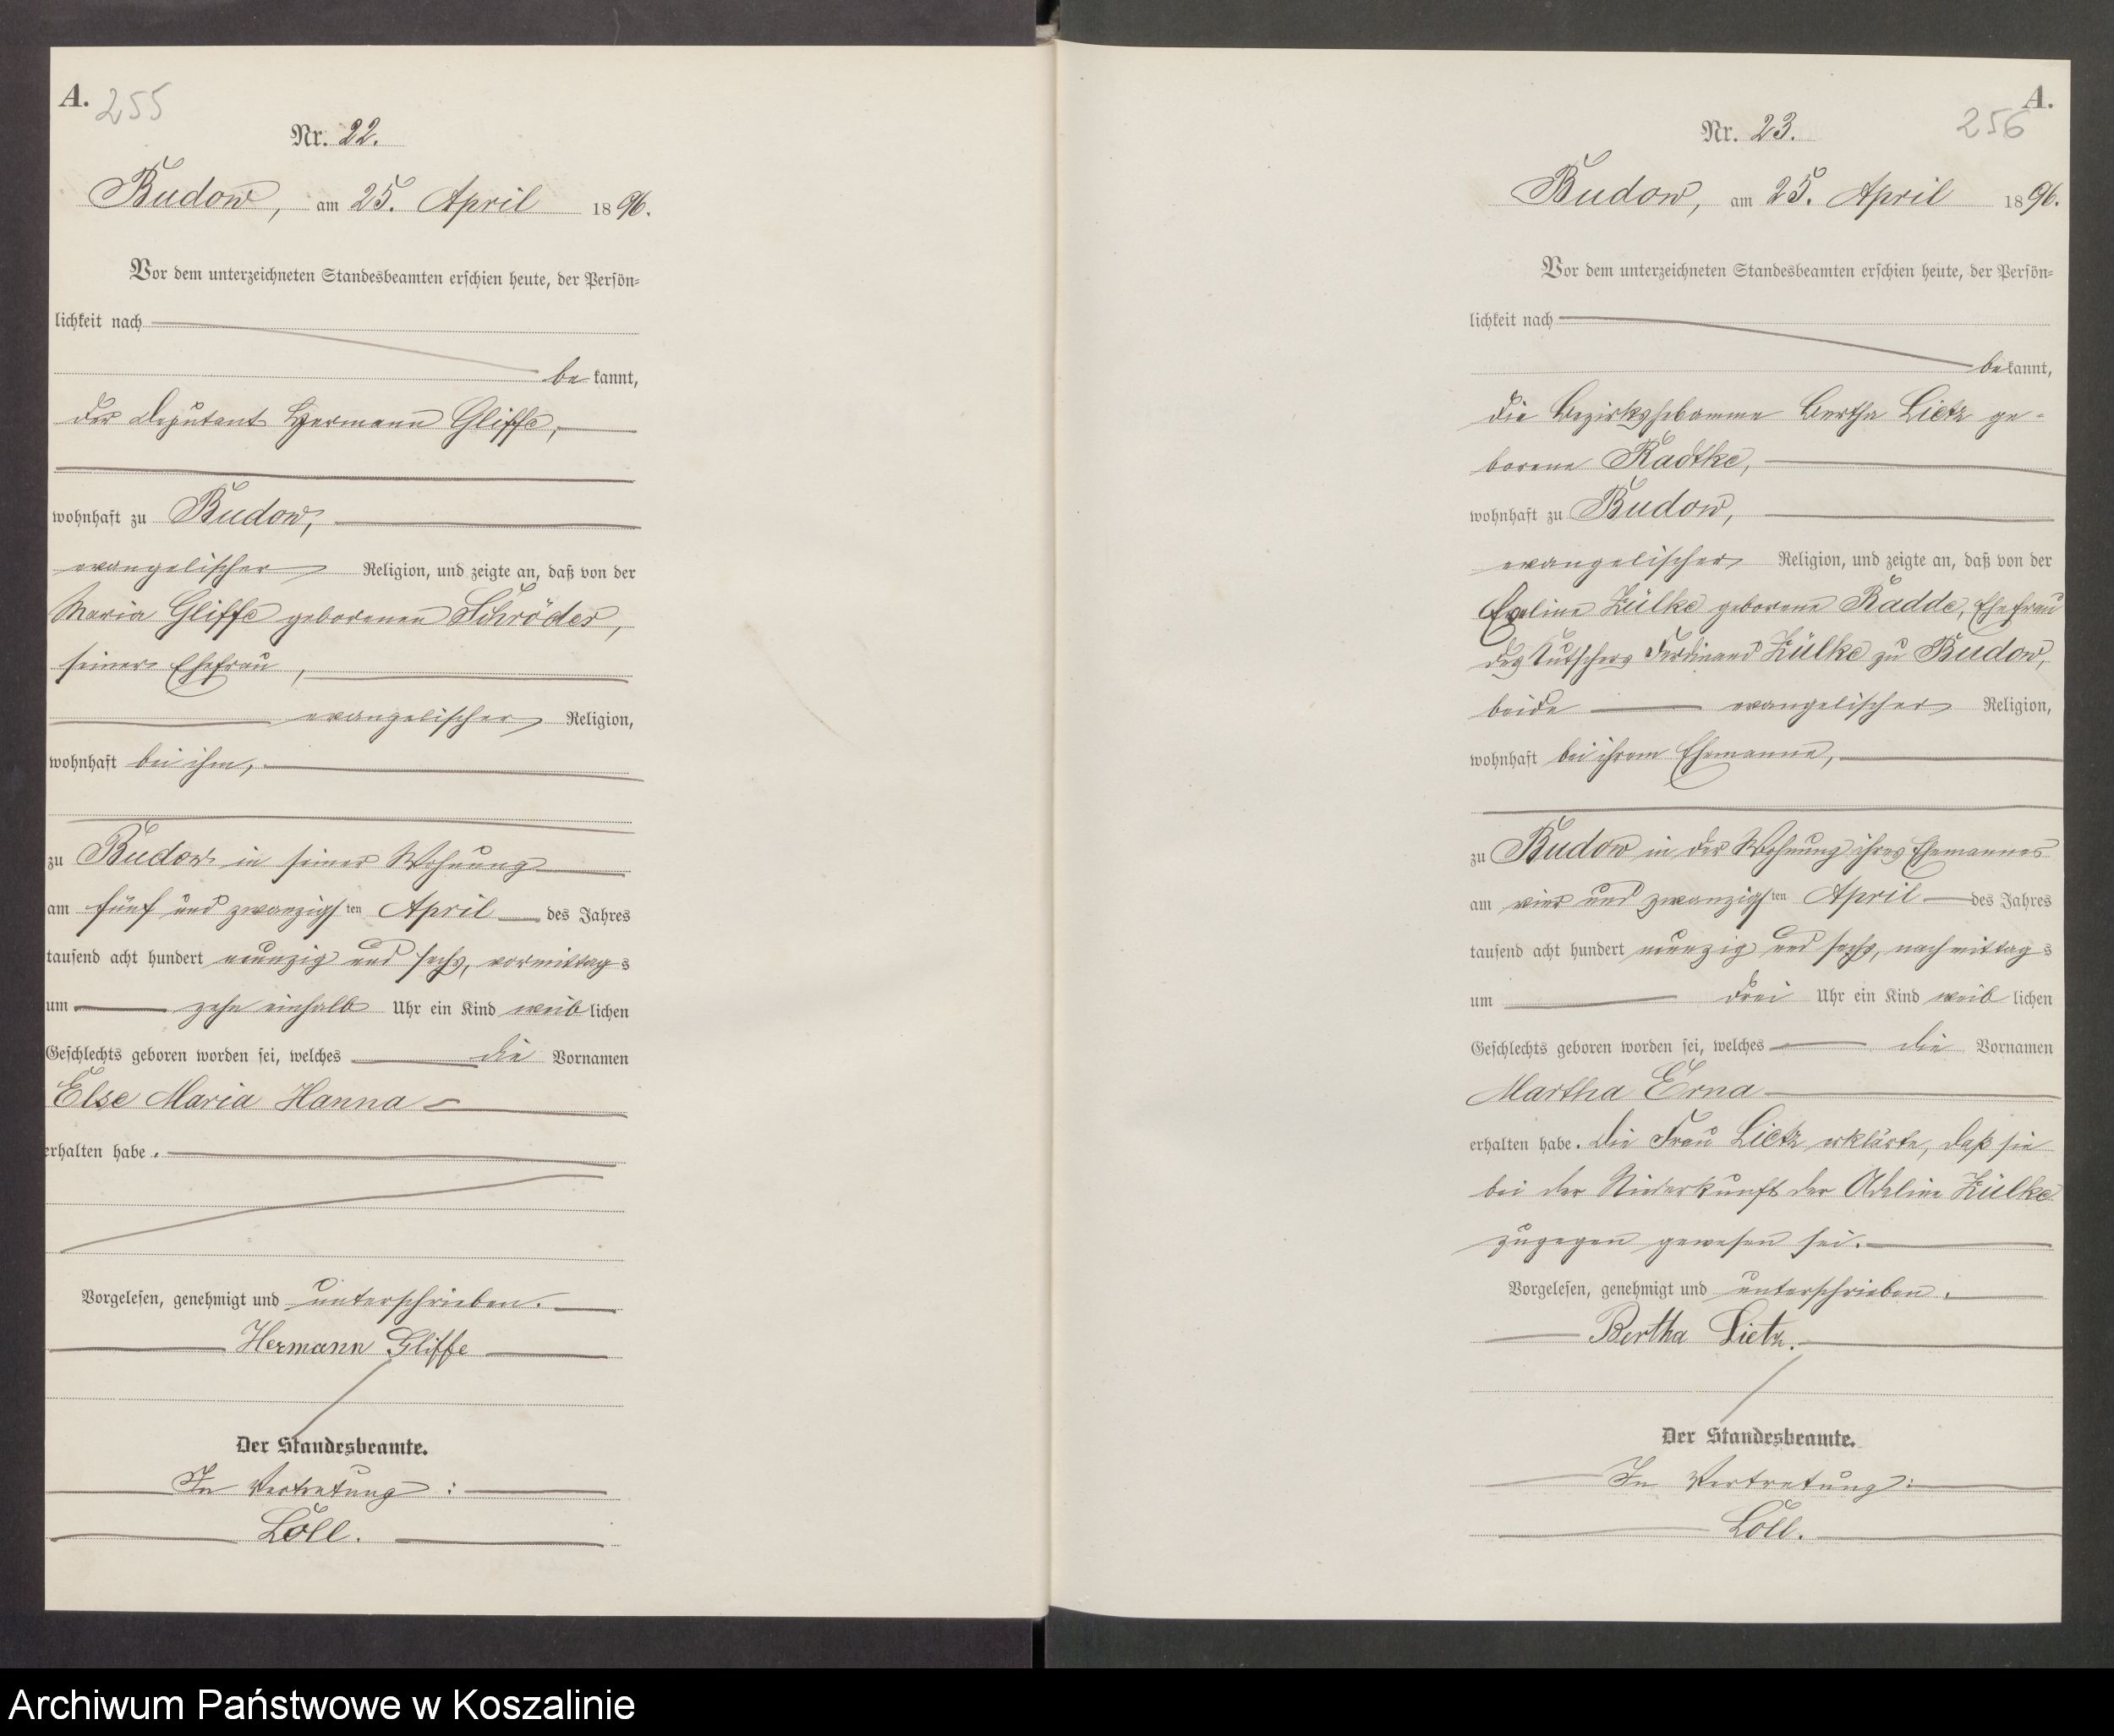 A. 255
Nr. 22.
Budow, am 25. April 1896.
Vor dem unterzeichneten Standesbeamten erschien heute, der Persön-
lichkeit nach
bekannt,
der Deputant Hermann Gliffe,
wohnhaft zu Budow,
evangelischer Religion, und zeigte an, daß von der
Maria Gliffe geborenen Schröder,
seiner Ehefrau,
evangelischer Religion,
wohnhaft bei ihm,
zu Budow in seiner Wohnung
am fünf und zwanzigsten April des Jahres
tausend acht hundert neunzig und sechs, vormittags
um zehn einhalb Uhr ein Kind weiblichen
Geschlechts geboren worden sei, welches die Vornamen
Else Maria Hanna
erhalten habe.
Vorgelesen, genehmigt und unterschrieben.
Hermann Gliffe
Der Standesbeamte.
In Vertretung:
Löll.
A.
256
Nr. 23.
Budow, am 25. April 1896.
Vor dem unterzeichneten Standesbeamten erschien heute, der Persön-
lichkeit nach
bekannt,
die Bezirkshebamme Bertha Lietz ge-
borene Radtke,
wohnhaft zu Budow,
evangelischer Religion, und zeigte an, daß von der
Zülke geborene Radde, Ehefrau
des Kutschers Ferdinand Zülke zu Budow,
beide evangelischer Religion,
wohnhaft bei ihrem Ehemanne,
zu Budow in der Wohnung ihres Ehemannes
am vier und zwanzigsten April des Jahres
tausend acht hundert neunzig und sechs, nachmittags
um drei Uhr ein Kind weiblichen
Geschlechts geboren worden sei, welches die Vornamen
Martha Erna
erhalten habe. Die Frau Lietz erklärte, daß sie
bei der Niederkunft der Adeline Zülke
zugegen gewesen sei.
Vorgelesen, genehmigt und unterschrieben.
Bertha Lietz.
Der Standesbeamte.
In Vertretung:
Löll.
Archiwum Państwowe w Koszalinie